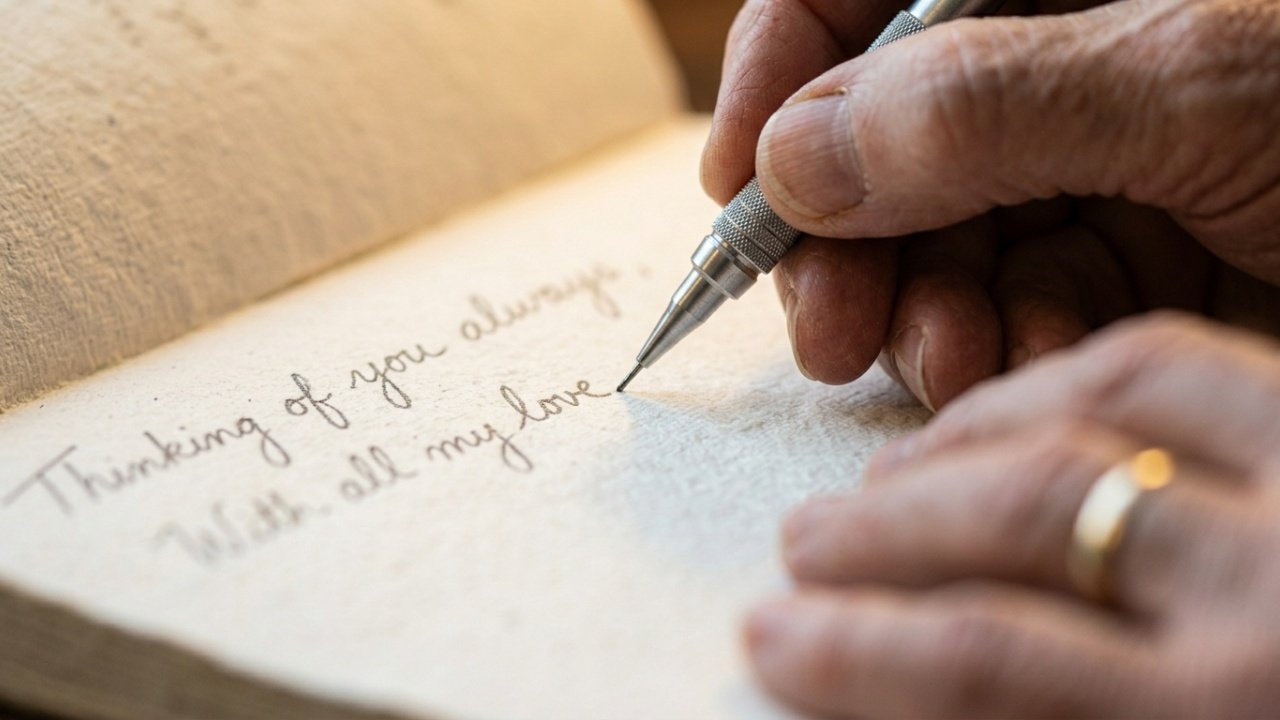 Thinking of you always,
With all my love